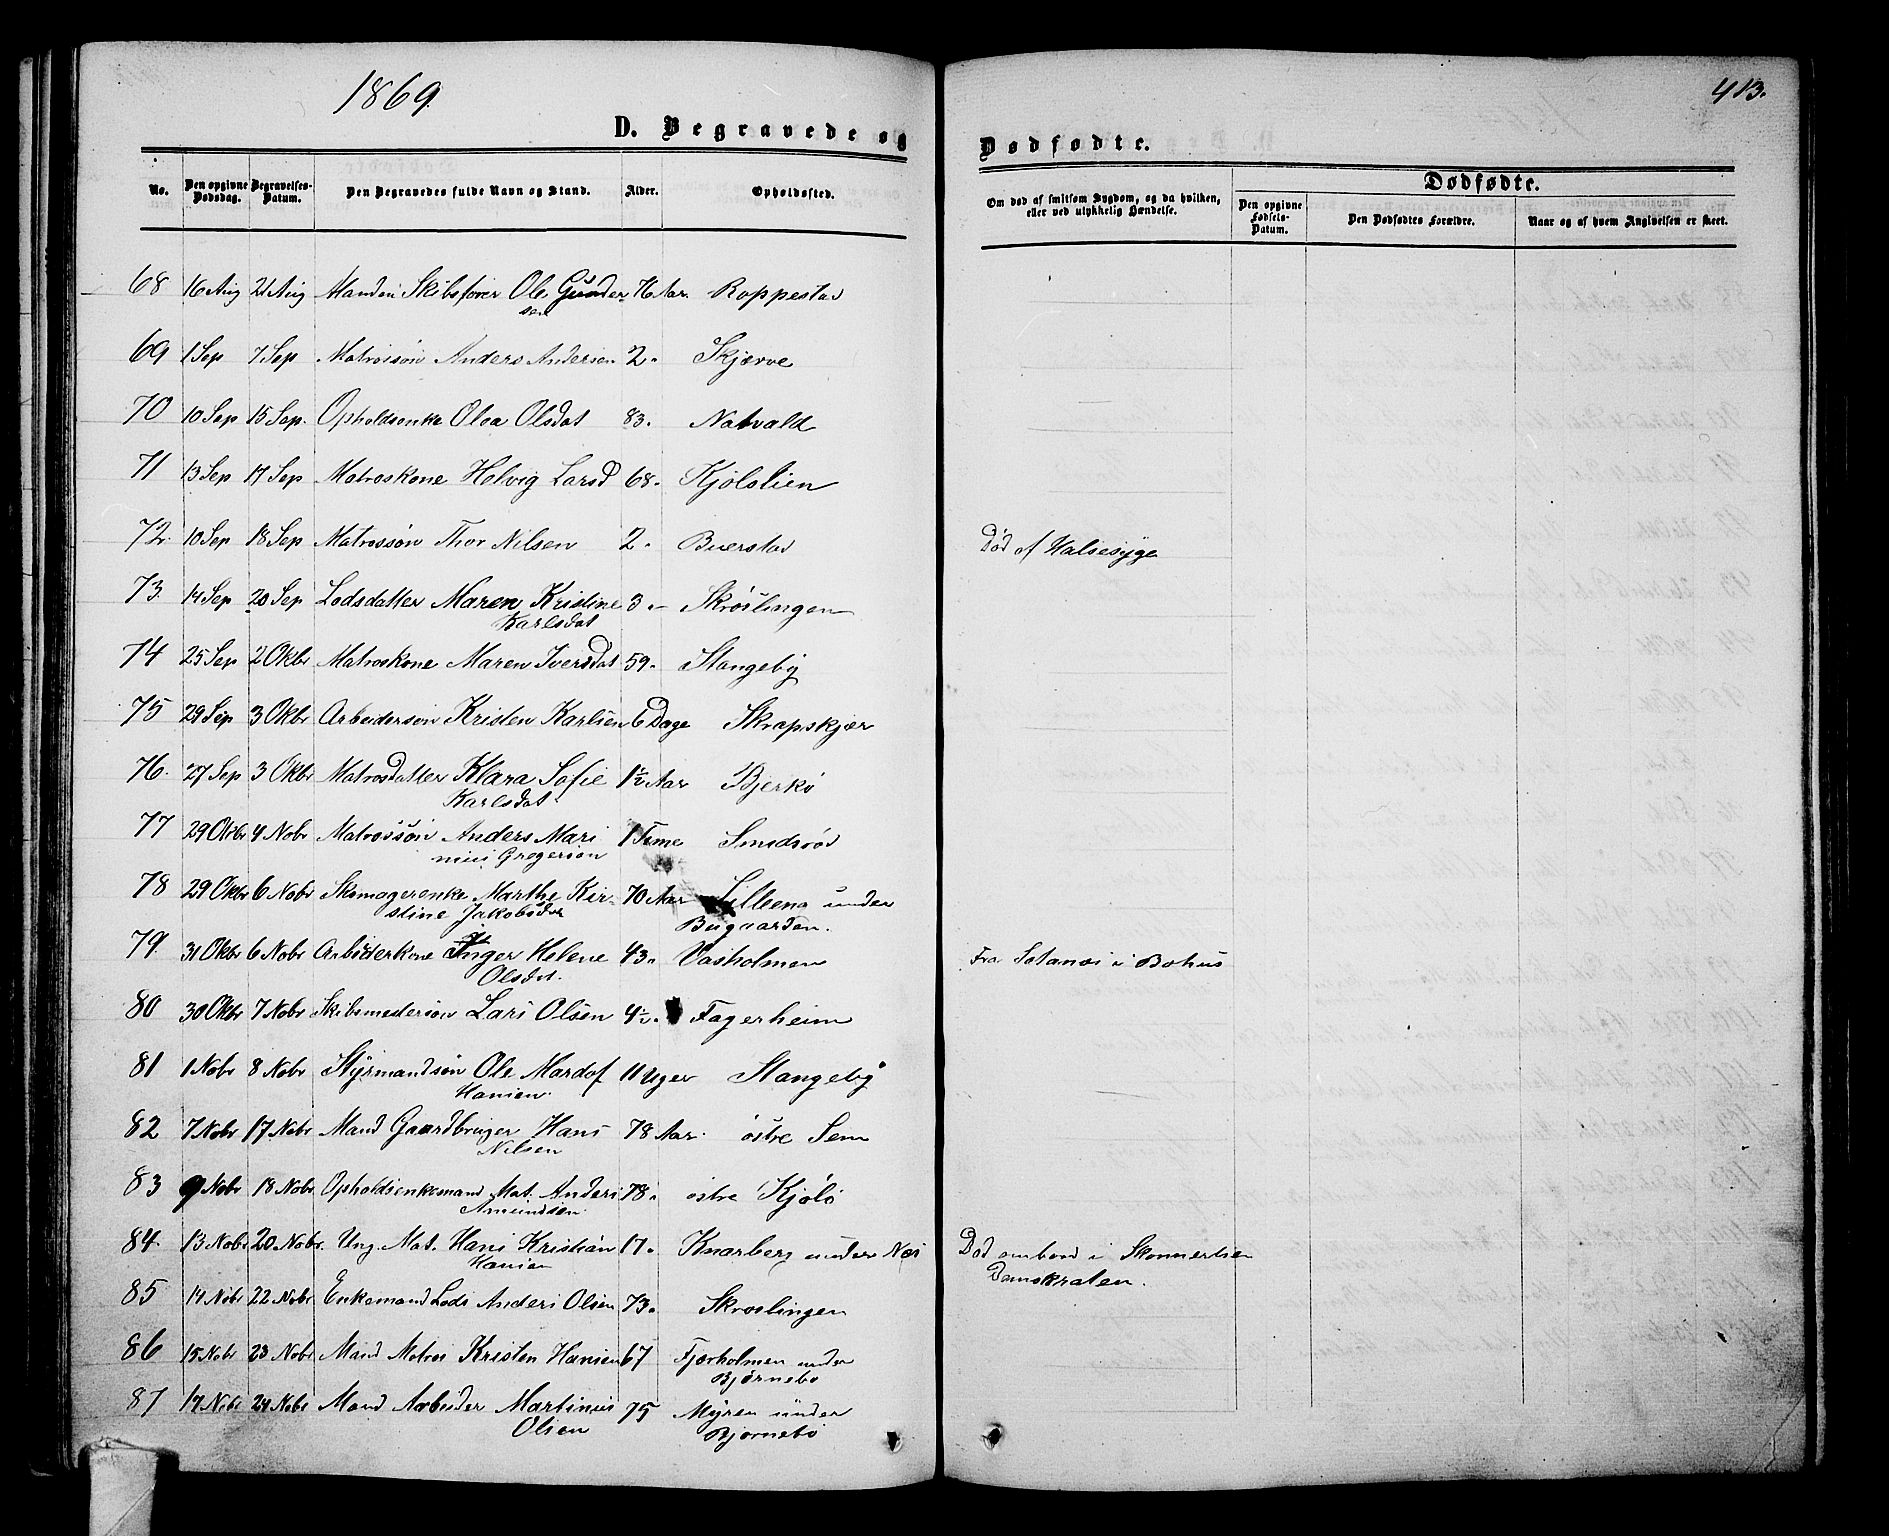 1869.
413.
D. Begravede og Dødfødte.
No. Den opgivne Dødsdag. Begravelses-Datum. Den Begravedes fulde Navn og Stand. Alder. Opholdssted.
Om død af smitsom Sygdom, og da hvilken, eller ved ulykkelig Hændelse.
Dødfødte.
Den opgivne Fødsels-Datum. Den Dødfødtes Forældre. Naar og af hvem Angivelsen er skeet.
68 16 Aug 21 Aug Manden Skibsfører Ole Gunder- 76 Aar. Roppestad
sen
69 1 Sep 7 Sep Matrossøn Anders Andersen 2. Skjærve
70 10 Sep 15 Sep. Opholdsenke Olea Olsdat 83. Natvald
71 13 Sep 17 Sep Matroskone Helvig Larsd 68. Kjølslien
72. 10 Sep 18 Sep Matrossøn Thor Nilsen 2. Buerstad Død af Halsesyge
73. 14 Sep 20 Sep Lodsdatter Maren Kristine 3. Skrøslingen
Karlsdat
74 25 Sep 2 Oktbr Matroskone Maren Iversdat 59. Stangeby
75 29 Sep 3 Oktbr Arbeidersøn Kristen Karlsen 6 Dage Skrapskjær
76. 27 Sep 3 Oktbr Matrosdatter Klara Sofie 1½ Aar Bjerkø
Karlsdat
77 29 Oktbr 4 Nobr Matrossøn Anders Mari 1 Time Smidsrød
nius Gregersen
78 29 Oktbr 6 Nobr Skomagerenke Marthe Kir- 70 Aar Lilleena under
stine Jakobsdat Bugaarden.
79. 31 Oktbr 6 Nobr Arbeiderkone Inger Helene 43. Vasholmen Fra Satanæs i Bohus
Olsdat.
80 30 Oktbr 7 Nobr Skibsmestersøn Lars Olsen 4½. Fagerheim
81 1 Nobr 8 Nobr Styrmandsøn Ole Mardof 11 Uger Stangeby
Hansen.
82 7 Nobr 17 Nobr Mand Gaardbruger Hans 78 Aar. østre Sem
Nilsen
83 9 Nobr 18 Nobr Opholdsenkemand Mat. Anders 78. østre Kjøló
Amundsen.
84. 13 Nobr 20 Nobr. Ung. Mat. Hans Kristian 17. Knarberg under Nes Død ombord i Skonnerten
Hansen Demokraten.
85 14 Nobr 22 Nobr Enkemand Lods Anders Olsen 73. Skroslingen
86 15 Nobr 23 Nobr Mand Matros Kristen Hansen 67 Fjærholmen under
Bjørnebo
87 17 Nobr 24 Nobr Mand Arbeider Martinius 75 Myren under
Olsen Bjørnebo